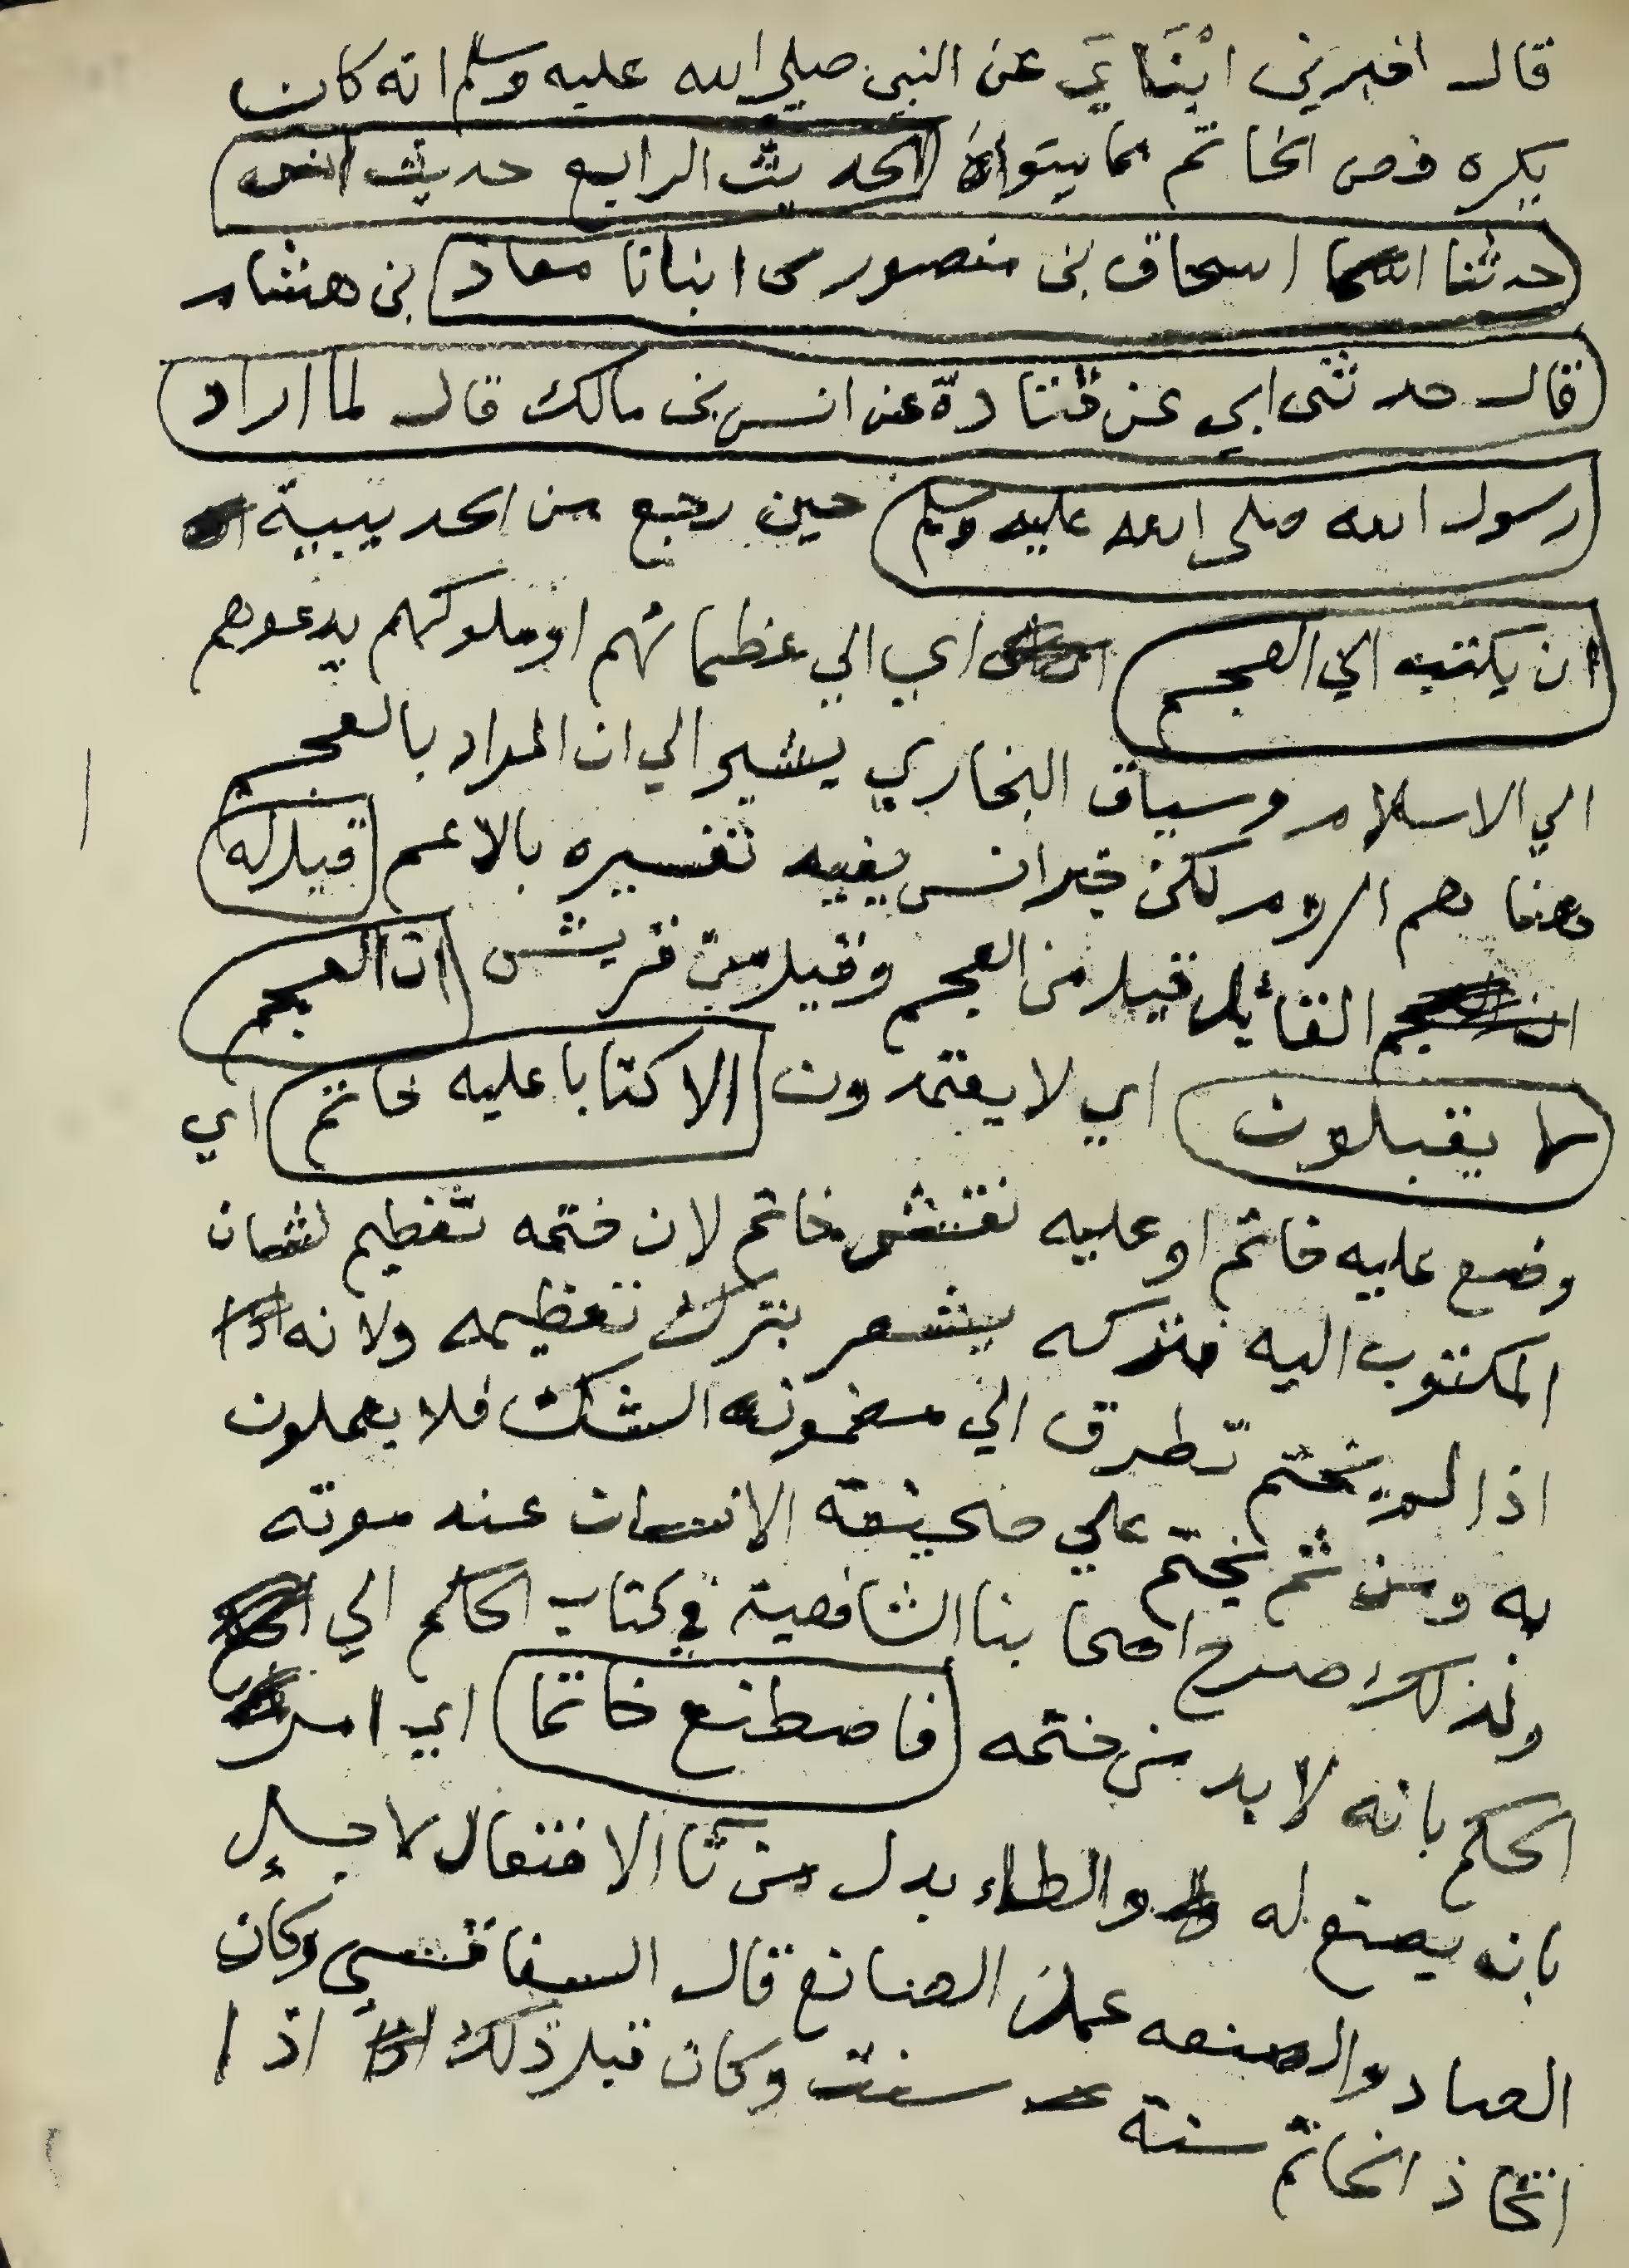 قال اخبرني عن النبي صلي الله عليه وسلم انه كان
يكره فص الخاتم مما سواه الحديث الرابع حديث انس
حدثنا اسحاق بن منصور انبانا معاذ بن هشام
قال حدثني ابي عن قتادة عن انس بن مالك قال لما اراد
رسول الله صلى الله عليه وسلم حين رجع من الحديبية
ان يكتب الي العجم اي الي عظمائهم او ملوكهم يدعوهم
الي الاسلام وسياق البخاري يشير الي ان المراد بالعجم
هنا هم الروم لكن خبر انس يفيد تفسيره بالاعم قيل له
القائل قيل من العجم وقيل من قريش ان العجم
لا يقبلون اي لا يعتمدون الا كتابا عليه خاتم اي
وضع عليه خاتم او عليه نقش خاتم لان ختمه تعظيم لشان
المكتوب اليه فتركه يشعر بترك تعظيمه ولانه
اذا لم يختم تطرق الي مضمونه الشك فلا يعملون
به ومن ثم يختم علي صحيفة الانسان عند موته
ولذلك صرح اصحابنا الشافعية في كتاب الحاكم الي
الحكم بانه لا بد من ختمه فاصطنع خاتما اي امر
بانه يصنع له والطاء بدل من تا الافتعال لاجل
الصاد والصنعه عمل الصانع قال السفاقسي وكان
اتخاذ الخاتم سنة ست وكان قبل ذلك اذا